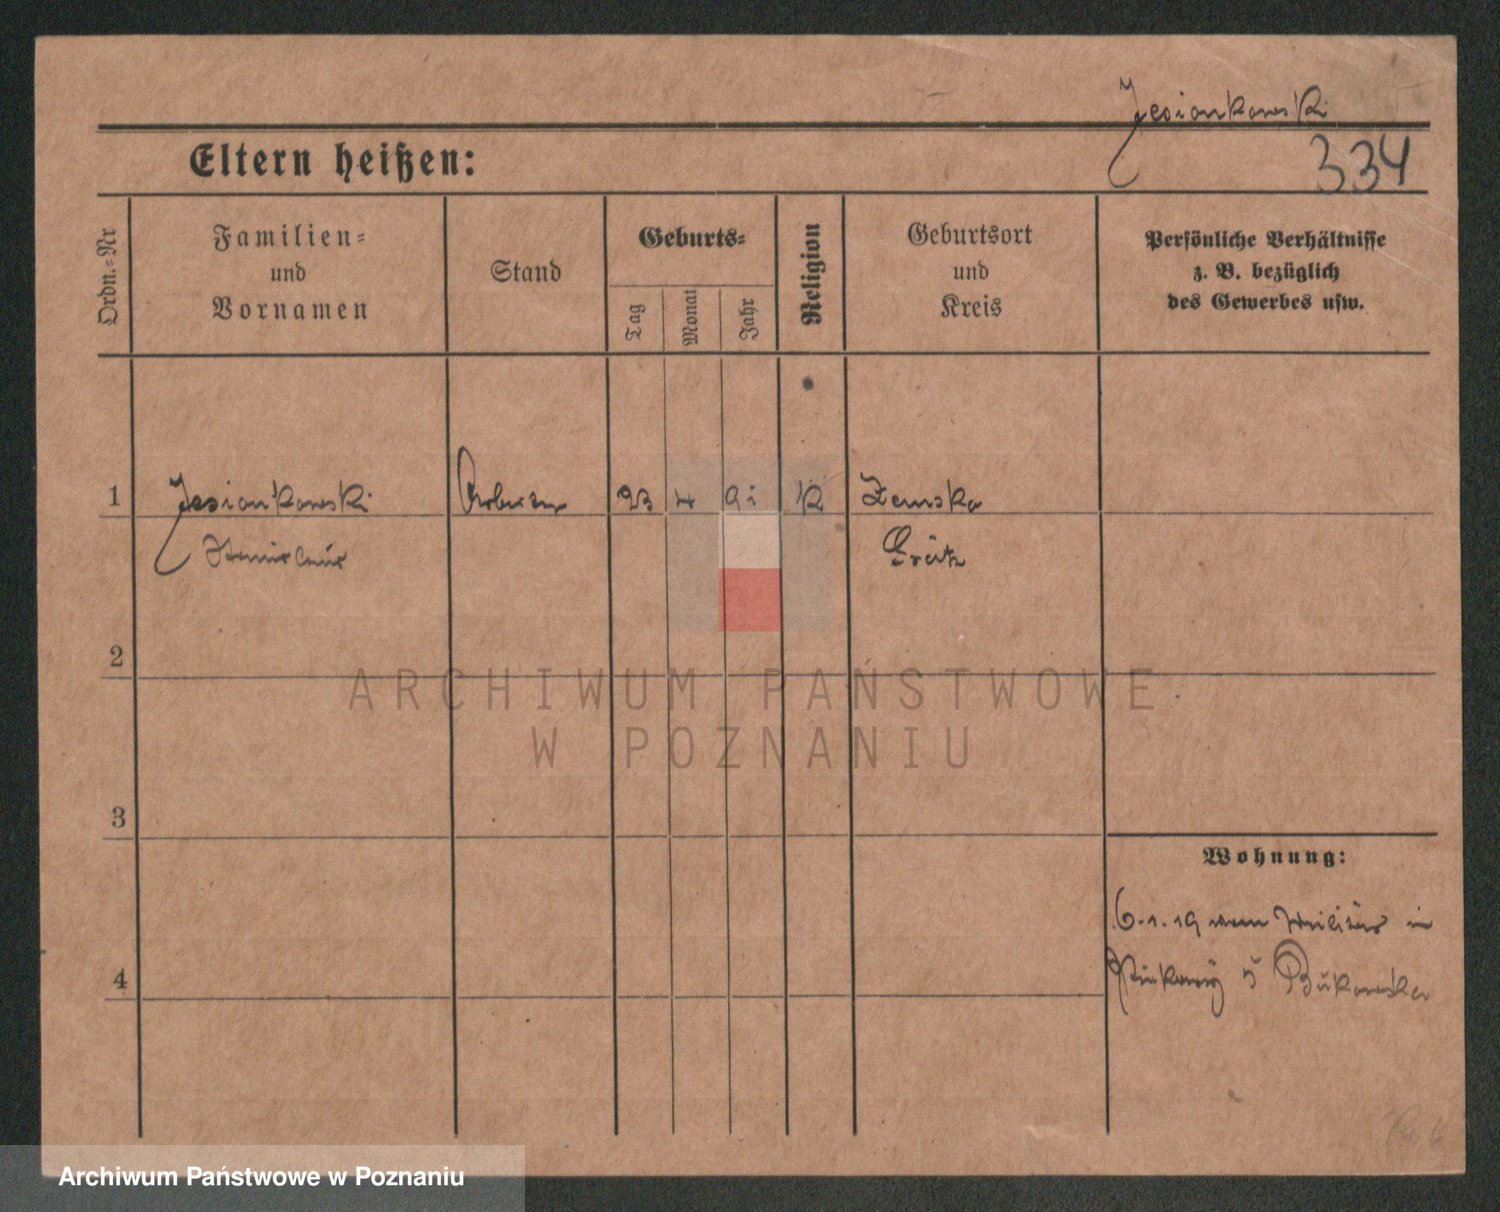 Jesionkowski
334
Eltern heißen:
Ordn.=Nr
Familien=
und
Vornamen
Stand
Geburts=
Tag
Monat
Jahr
Religion
Geburtsort
und
Kreis
Persönliche Verhältnisse
z. B. bezüglich
des Gewerbes usw.
1 Jesionkowski 23 4 91 K Zemsko
Stanislaus
Grätz
2
3
4
Wohnung:
6.1.19 vom Militär in
5 Bukowska
ARCHIWUM PAŃSTWOWE
W POZNANIU
Archiwum Państwowe w Poznaniu